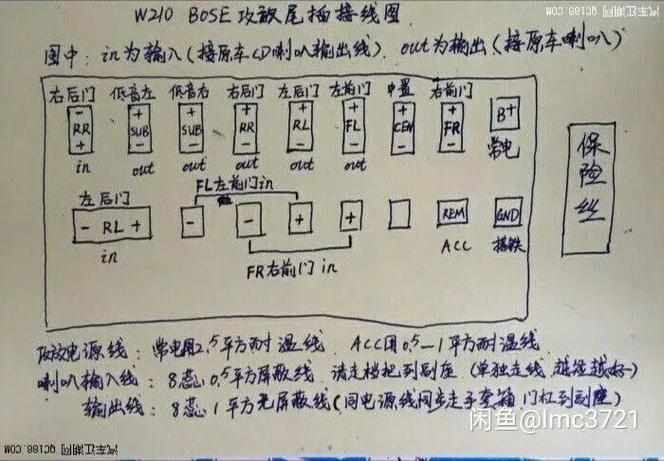 W210 BOSE攻放尾插接线图
图中：in为输入（接原车CD喇叭输出线）．out为输出（接原车喇叭）
右后门 低音左 低音右 右后门 左后门 左前门 中置 右前门
- RR + + SUB - + SUB - + RR - + RL - + FL - + CEN - + FR - B+
常电
in out out out out out
保险丝
FL左前门in
左后门
- RL + - - + + REM GND
in ACC 搭铁
FR右前门 in
攻放电源线：常电用2.5平方耐温线 ACC用0.5—1平方耐温线
喇叭输入线：8蕊0.5平方屏蔽线 请走档把到副座（单独走线,越短越好）
输出线：8蕊1平方无屏蔽线（同电源线同步走手套箱门杠到副座）
闲鱼@lmc3721
汽车江湖网 QC188.COM
汽车江湖网 QC188.COM